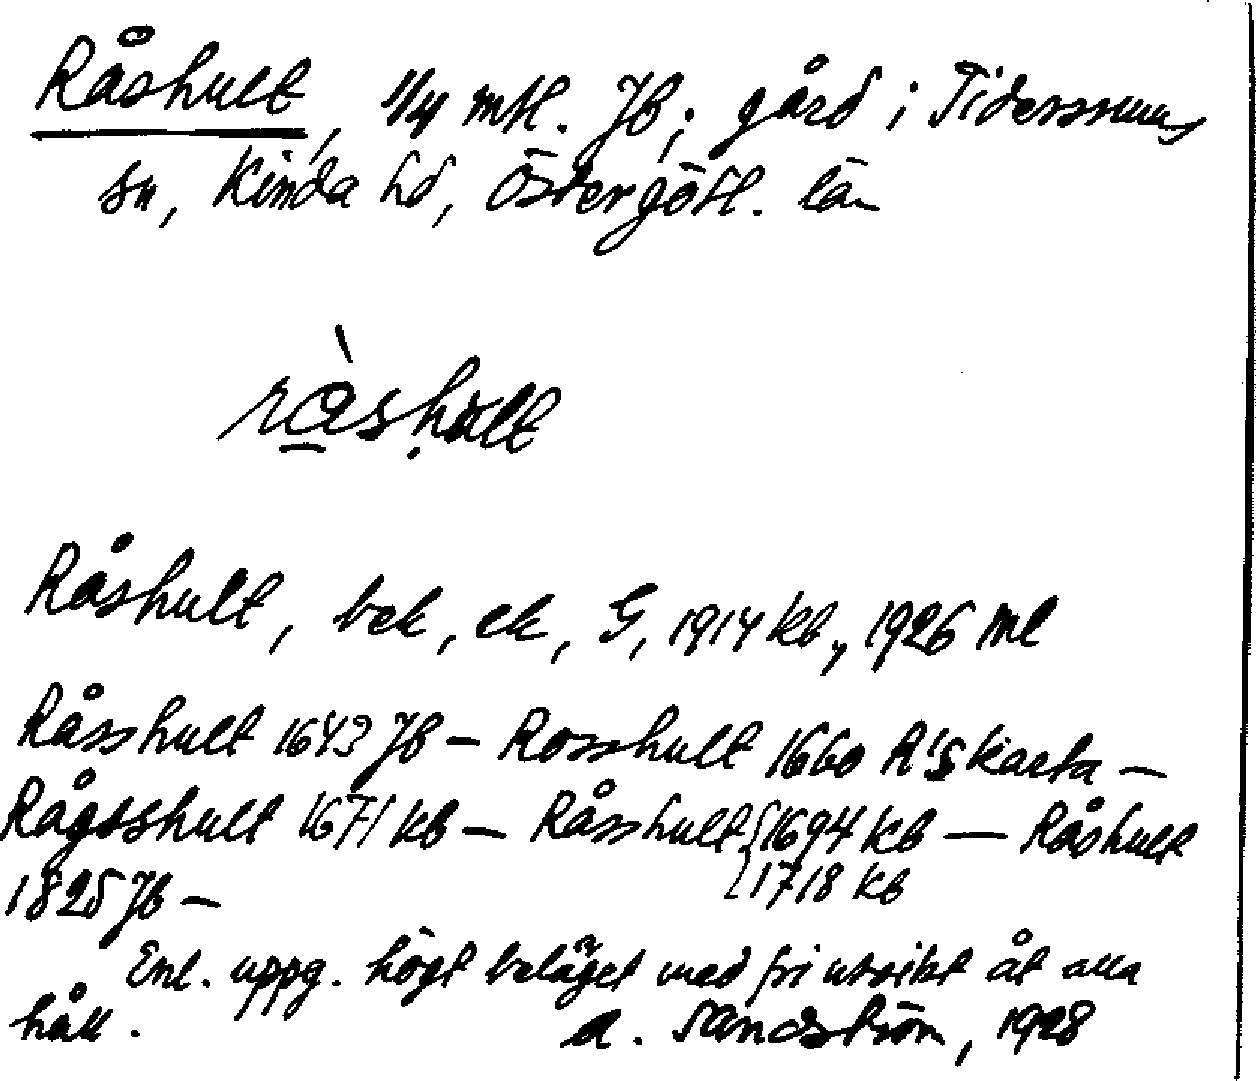 Råshult, 1/4 mtl. Jb; gård i Tidersrums
sn, Kinda hd, Östergötl. län
ràshult
Råshult, bek, ek, G, 1914 kb, 1926 ml
Råsshult 1643 Jb – Rosshult 1660 R'S karta –
Rågsshult 1671 kb – Råsshult {1694 kb — Råshult
{1718 kb
1825 Jb –
Enl. uppg. högt beläget med fri utsikt åt alla
håll. A. Sandström, 1928